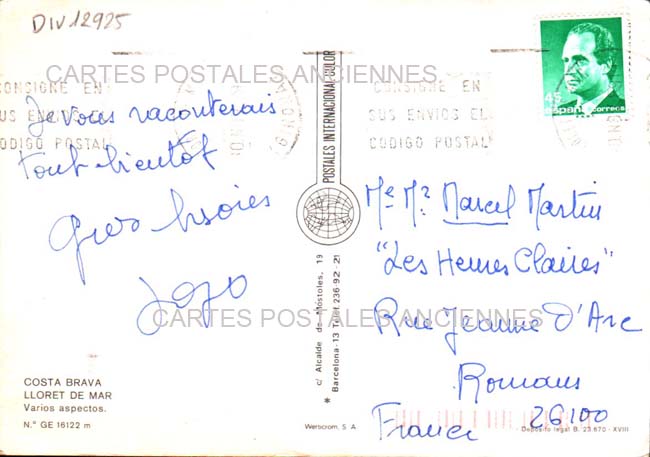 DIV12925
CARTES POSTALES ANCIENNES
CONSIGNE EN
SUS ENVIOS EL
CODIGO POSTAL
CONSIGNE EN
SUS ENVIOS EL
CODIGO POSTAL
45
España correos
Je vous raconterais
tout bientôt
Gros bisoies
Jojo
POSTALES INTERNACIONAL COLOR
c/ Alcalde de Móstoles, 19
* Barcelona-13 Telef 236 92 21
Me Mr Marcel Martin
"Les Heures Claires"
Rue Jeanne D'Arc
Romans
26100
France
CARTES POSTALES ANCIENNES
COSTA BRAVA
LLORET DE MAR
Varios aspectos.
N.° GE 16122 m
Werscrom, S. A.
Depósito legal B. 23.670 - XVIII